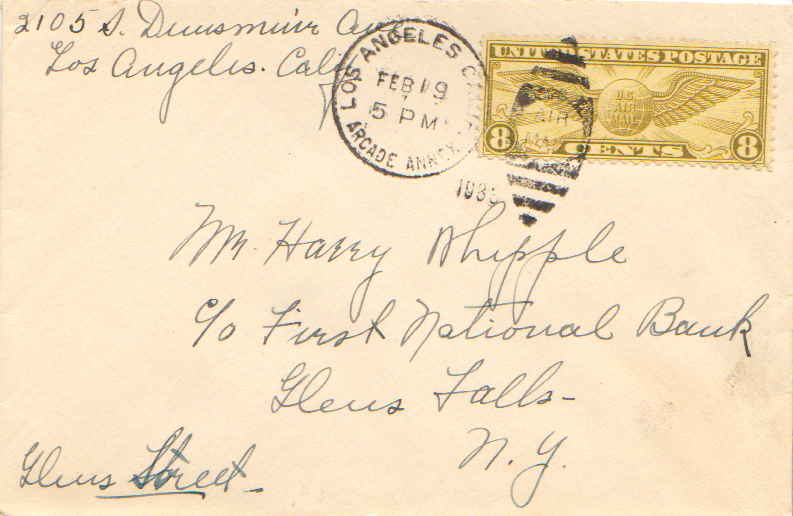 2105 S. Dunsmuir Ave
Los Angeles. Calif
LOS ANGELES
FEB 19
5 PM
ARCADE ANNEX
193
UNITED STATES POSTAGE
U.S.
AIR
MAIL
8 CENTS 8
Mr. Harry Whipple
c/o First National Bank
Glens Falls-
N.Y.
Glens Street-